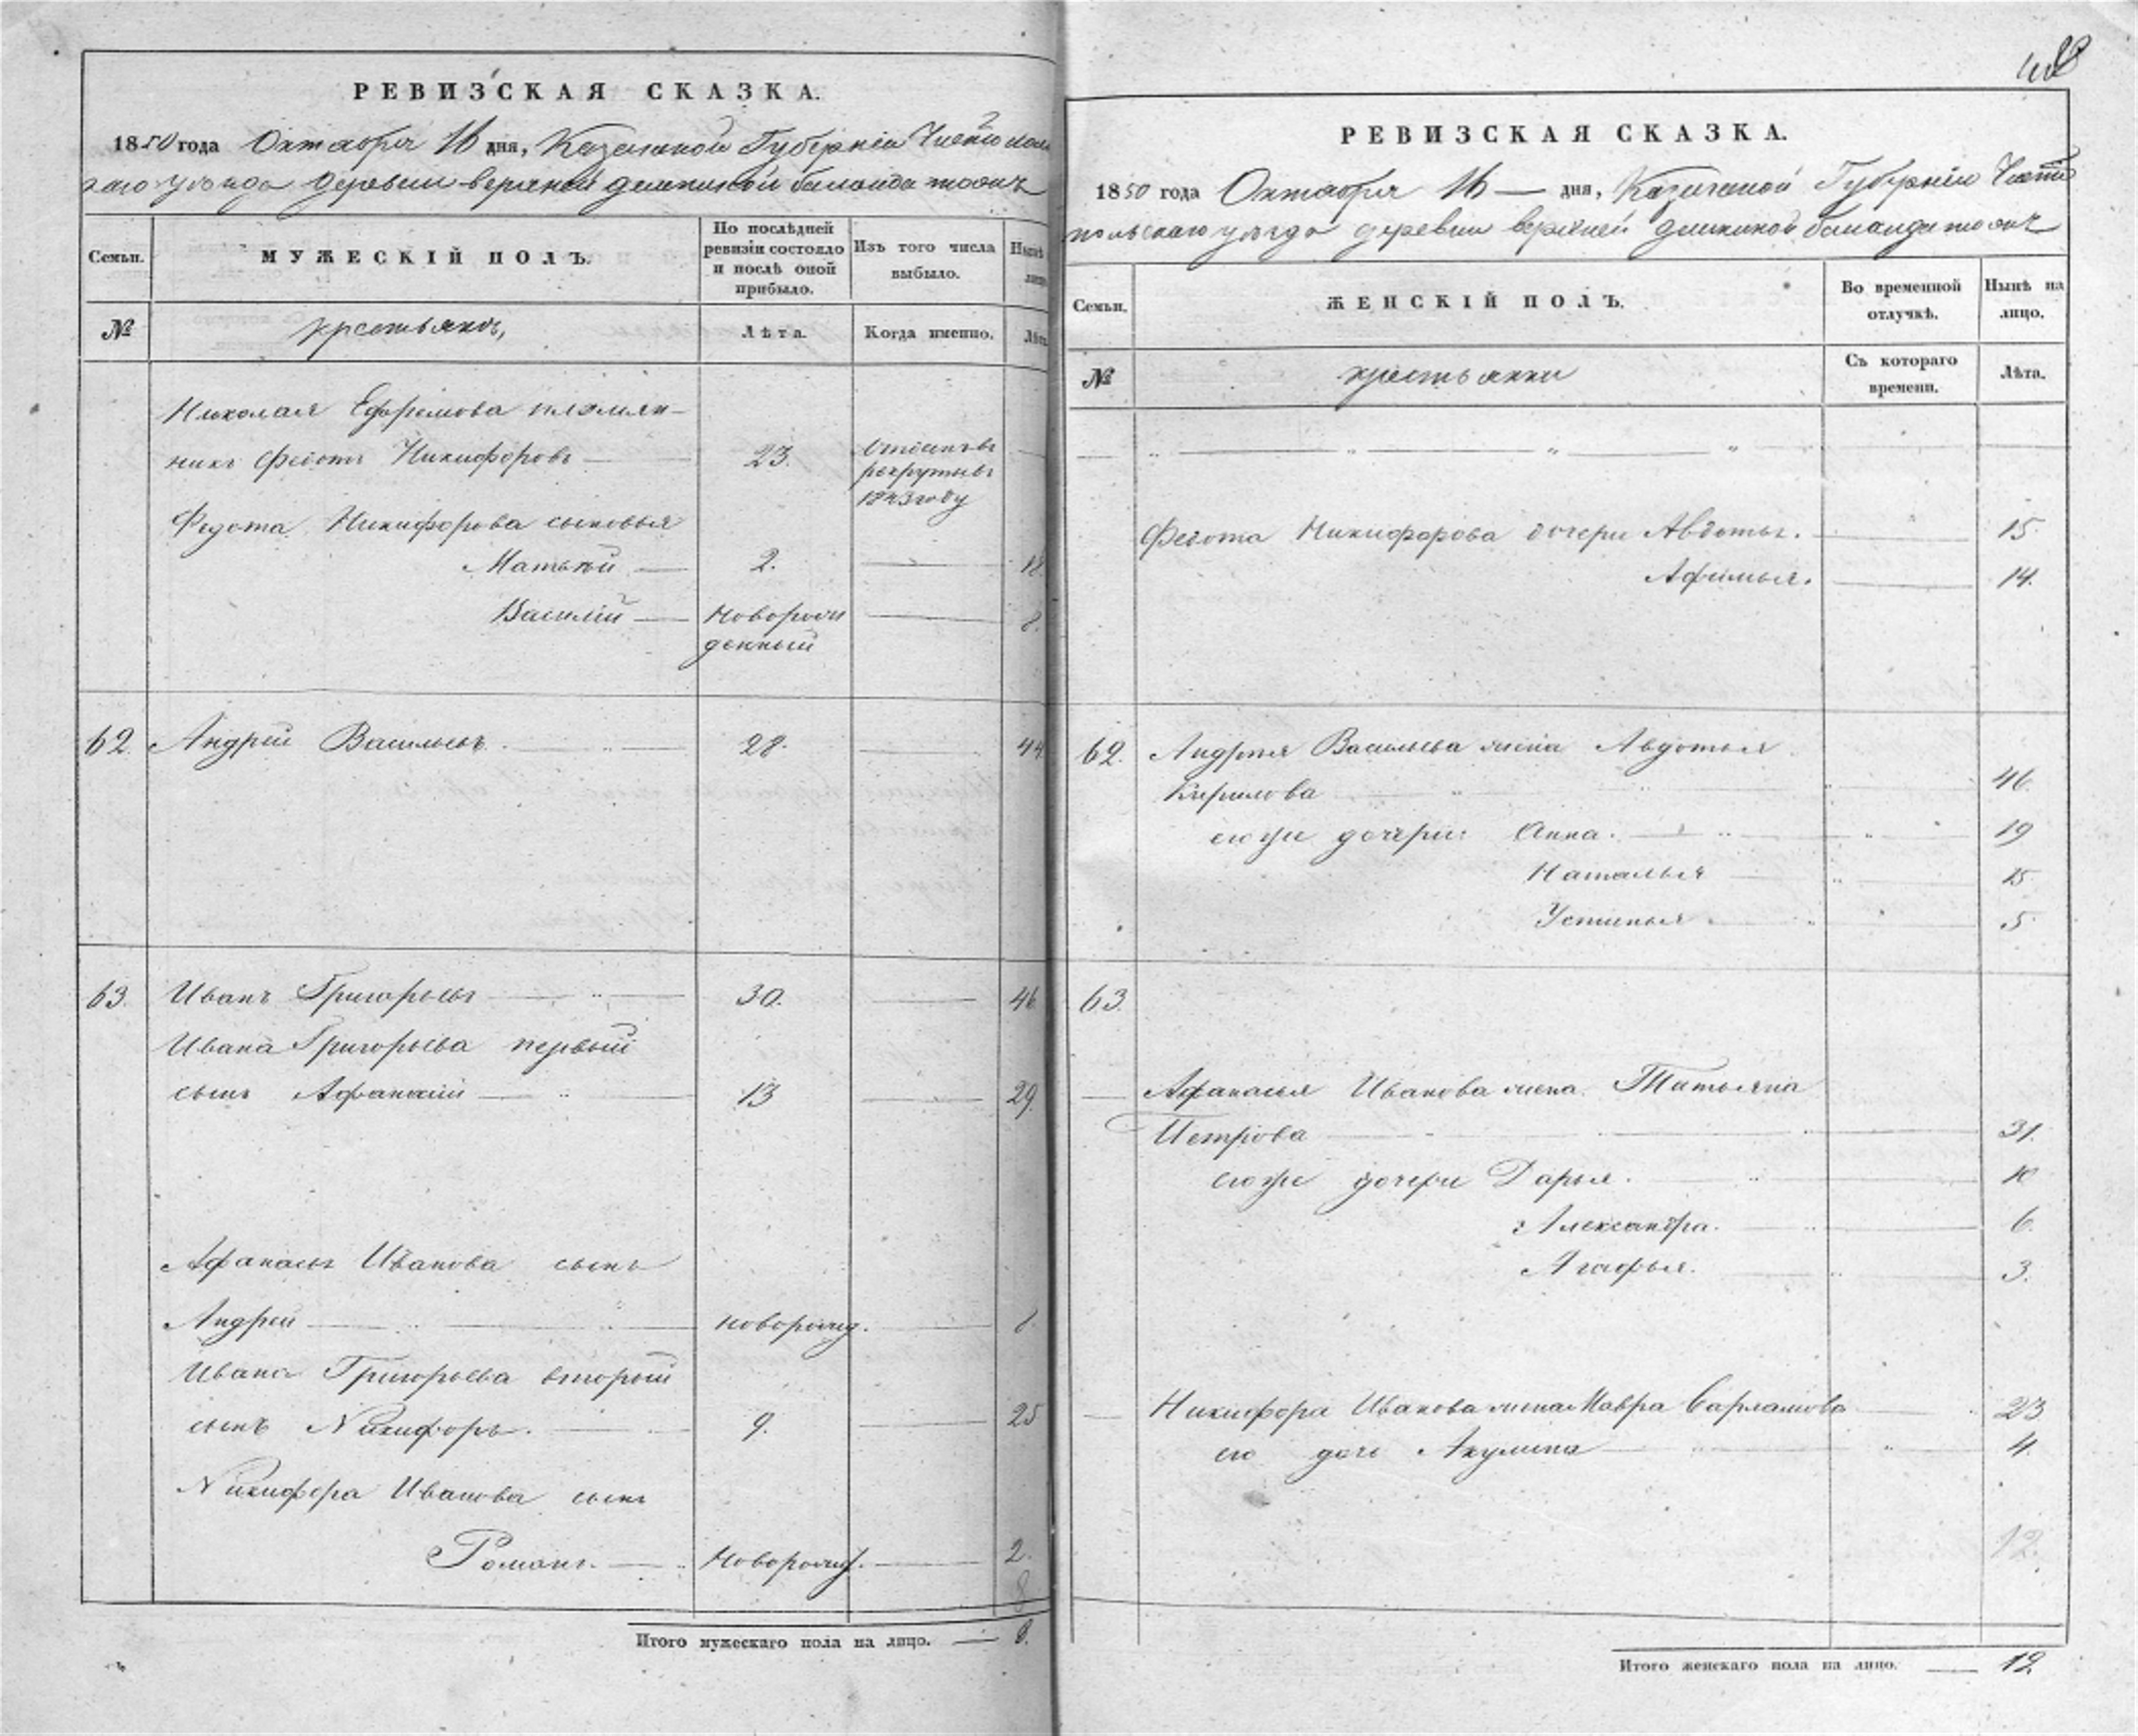 РЕВИЗСКАЯ СКАЗКА.
1850 года Октября 16 дня, Казанской Губерніи Чистополь
скаго уѣзда деревни верхней
Семьи.
МУЖЕСКІЙ ПОЛЪ.
По послѣдней
ревизіи состояло
и послѣ оной
прибыло.
Изъ того числа
выбыло.
Нынѣ
№
крестьянъ,
Лѣта.
Когда именно.
Лѣта
Николая Ефремова племян-
никъ Федотъ Никифоровъ
23.
рекрутъ
1843 году
Федота Никифорова сыновья
Матвѣй
2.
18.
Василій
новорож
денный
8.
62.
Андрей Васильевъ
28.
44
63.
Иванъ Григорьевъ
30.
46
Ивана Григорьева первый
сынъ Афанасій
13
29.
Афанасья Иванова сынъ
Андрей
новорожд.
8.
Ивана Григорьева второй
сынъ Никифоръ.
9.
25
Никифора Иванова сынъ
Романъ.
новорожд.
2.
8
Итого мужескаго пола на лицо. — 8.
РЕВИЗСКАЯ СКАЗКА.
1850 года Октября 16 — дня, Казанской Губерніи Чисто
польскаго уѣзда деревни верхней
Семьи.
ЖЕНСКІЙ ПОЛЪ.
Во временной
отлучкѣ.
Нынѣ на
лицо.
№
крестьянки
Съ котораго
времени.
Лѣта.
Федота Никифорова дочери Авдотья.
15.
Афимья.
14.
62.
Андрея Васильева жена Авдотья
Кирилова
46.
его же дочери: Анна.
19
Наталья
15
Устинья
5.
63.
Афанасья Иванова жена Татьяна
Петрова
31.
его же дочери Дарья.
10
Александра.
6.
Агафья.
3.
Никифора Иванова жена Мавра Варламова
23
его дочь Акулина
4.
12.
Итого женскаго пола на лицо. — 12